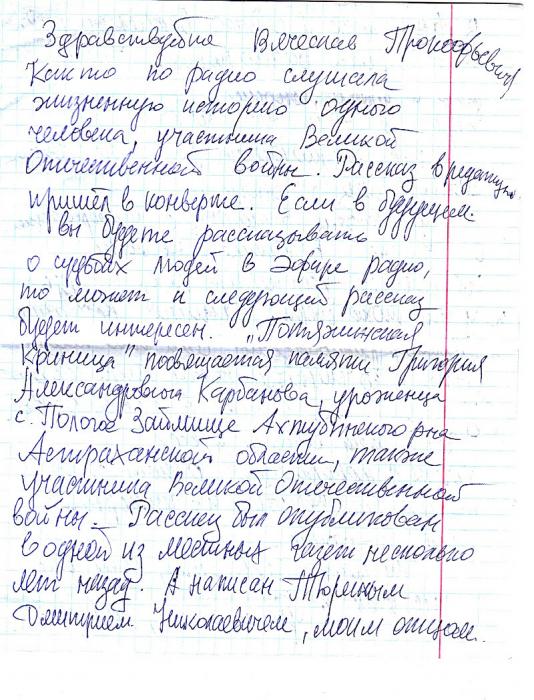 Здравствуйте Вячеслав Прокофьевич
Как то по радио слушала
жизненную историю одного
человека, участника Великой
Отечественной войны. Рассказ в редакцию
пришёл в конверте. Если в будущем
вы будете рассказывать
о судьбах людей в эфире радио,
то может и следующий рассказ
будет интересен. „Потяжинская
криница" посвящается памяти Григория
Александровича Карбанова, уроженца
с. Пологое Займище Ахтубинского р-на
Астраханской области, также
участника Великой Отечественной
войны. Рассказ был опубликован
в одной из местных газет несколько
лет назад. А написан Тюриным
Дмитрием Николаевичем, моим отцом.